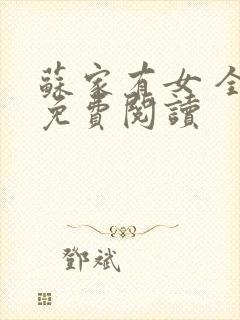 蘇家有女全
免費閱讀
鄧斌